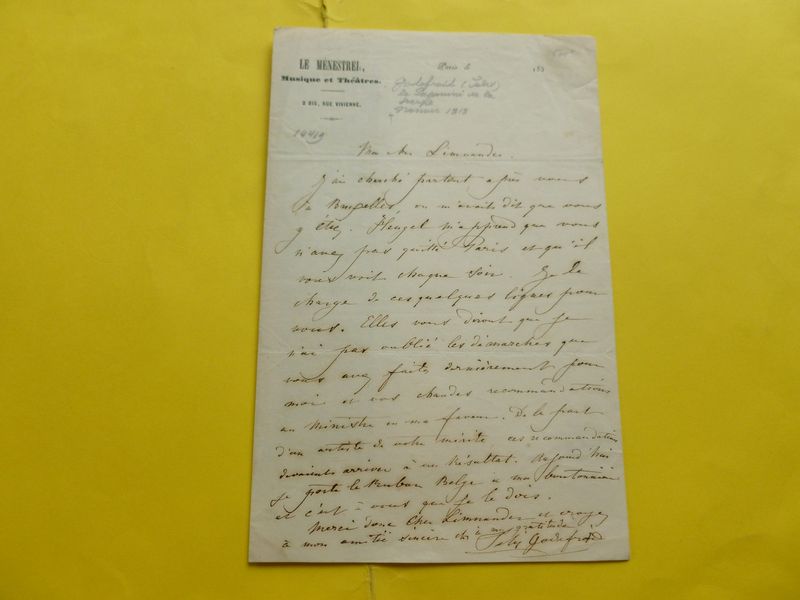 LE MÉNESTREL,
Musique et Théâtres.
2 BIS, RUE VIVIENNE.
Paris le 185
Godefroid (Félix)
le de la
harpe
Namur 1818
Mon cher Limnander.
J'ai cherché partout après vous
à Bruxelles, on m'avait dit que vous
y étiez. Heugel m'apprend que vous
n'avez pas quitté Paris et qu'il
vous voit chaque soir. Je le
charge de ces quelques lignes pour
vous. Elles vous diront que je
n'ai pas oublié les démarches que
vous avez faites dernièrement pour
moi et vos chaudes recommandations
au Ministre en ma faveur. De la part
d'un artiste de votre mérite, ces recommandations
devaient arriver à un résultat. Aujourd'hui
je porte le Ruban Belge a ma boutonnière
et c'est à vous que je le dois.
Merci donc Cher Limnander et croyez
à mon amitié sincère et à ma gratitude
Félix Godefroid